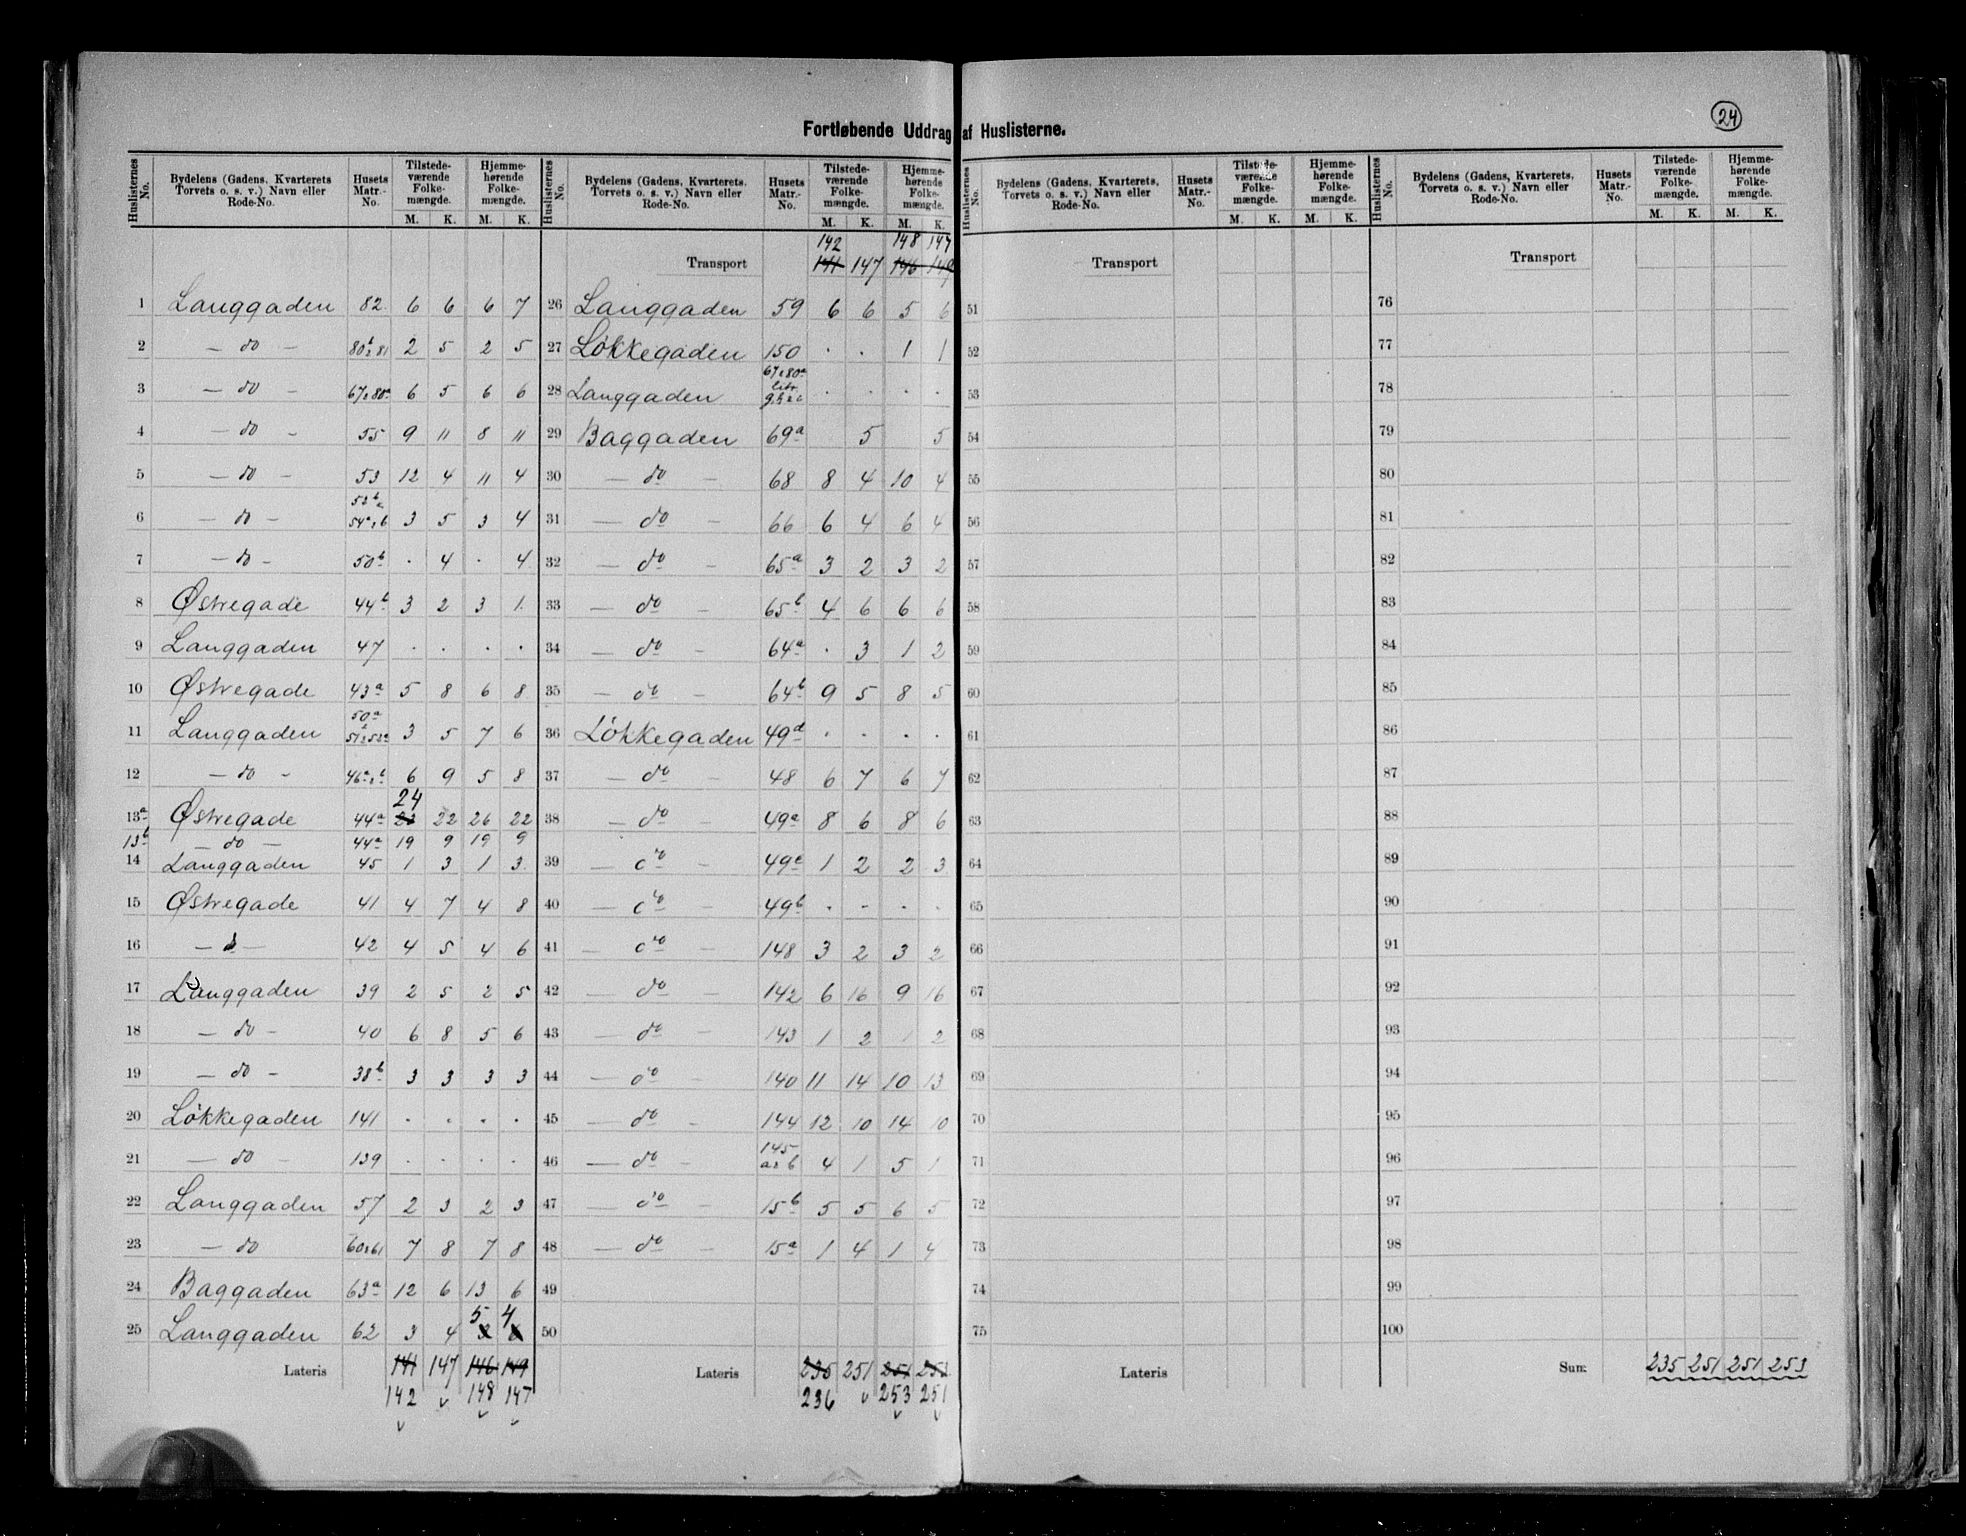 24
Fortløbende Uddrag af Huslisterne.
Huslisternes No. Bydelens (Gadens, Kvarterets, Torvets o. s. v.) Navn eller Rode-No. Husets Matr.-No. Tilstedeværende Folkemængde. M. K. Hjemmehørende Folkemængde. M. K.
1 Langgaden 82 6 6 6 7
2 — do — 80b & 81 2 5 2 5
3 — do — 67 & 80a 6 5 6 6
4 — do — 55 9 11 8 11
5 — do — 53 12 4 11 4
6 — do — 52b & 54a & b 3 5 3 4
7 — do — 50b . 4 . 4
8 Østregade 44b 3 2 3 1
9 Langgaden 47 . . . .
10 Østregade 43a 5 8 6 8
11 Langgaden 50a & 51 & 52a 3 5 7 6
12 — do — 46a & b 6 9 5 8
13a Østregade 44a 24 22 26 22
13b — do — 44a 19 9 19 9
14 Langgaden 45 1 3 1 3
15 Østregade 41 4 7 4 8
16 — d — 42 4 5 4 6
17 Langgaden 39 2 5 2 5
18 — do — 40 6 8 5 6
19 — do — 38b 3 3 3 3
20 Løkkegaden 141 . . . .
21 — do — 139 . . . .
22 Langgaden 57 2 3 2 3
23 — do 60 & 61 7 8 7 8
24 Baggaden 63a 12 6 13 6
25 Langgaden 62 3 4 5 4
Lateris 141 147 146 149
142 148 147
Huslisternes No. Bydelens (Gadens, Kvarterets, Torvets o. s. v.) Navn eller Rode-No. Husets Matr.-No. Tilstedeværende Folkemængde. M. K. Hjemmehørende Folkemængde. M. K.
142 148 147
Transport 141 147 146 149
26 Langgaden 59 6 6 5 6
27 Løkkegaden 150 . . 1 1
28 Langgaden 67 & 80a litr . . . .
29 Baggaden 69a 5 5
30 — do — 68 8 4 10 4
31 — do — 66 6 4 6 4
32 — do — 65a 3 2 3 2
33 — do — 65b 4 6 6 6
34 — do — 64a . 3 1 2
35 — do — 64b 9 5 8 5
36 Løkkegaden 49d . . . .
37 — do — 48 6 7 6 7
38 — do — 49a 8 6 8 6
39 — do — 49c 1 2 2 3
40 — do — 49b . . . .
41 — do — 148 3 2 3 2
42 — do — 142 6 16 9 16
43 — do — 143 1 2 1 2
44 — do — 140 11 14 10 13
45 — do — 144 12 10 14 10
46 — do — 145 a & b 4 1 5 1
47 — do — 15b 5 5 6 5
48 — do — 15a 1 4 1 4
49
50
Lateris 235 251 251 253
236 253 251
Huslisternes No. Bydelens (Gadens, Kvarterets, Torvets o. s. v.) Navn eller Rode-No. Husets Matr.-No. Tilstedeværende Folkemængde. M. K. Hjemmehørende Folkemængde. M. K.
Transport
51
52
53
54
55
56
57
58
59
60
61
62
63
64
65
66
67
68
69
70
71
72
73
74
75
Lateris
Huslisternes No. Bydelens (Gadens, Kvarterets, Torvets o. s. v.) Navn eller Rode-No. Husets Matr.-No. Tilstedeværende Folkemængde. M. K. Hjemmehørende Folkemængde. M. K.
Transport
76
77
78
79
80
81
82
83
84
85
86
87
88
89
90
91
92
93
94
95
96
97
98
99
100
Sum: 235 251 251 253